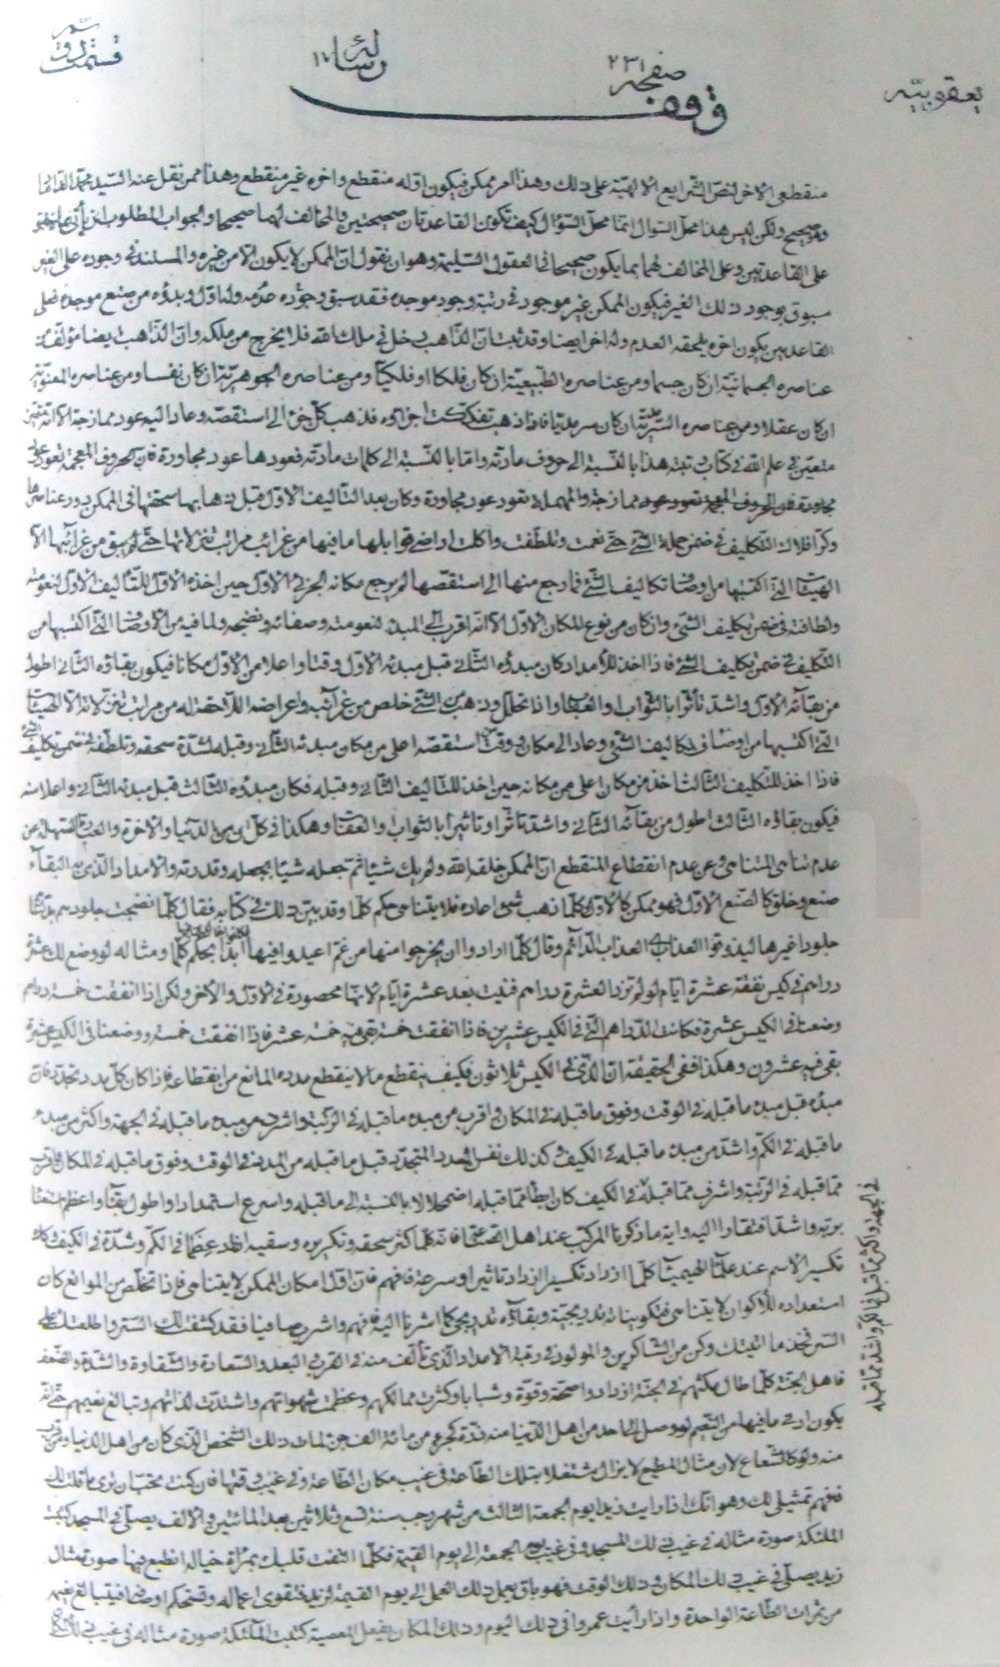 يعقوبيّه
صفحه ٢٣١
وقف
رسالة ١٧
منقطعى الاخر لنص الشرايع الالهيّة على ذلك وهذا امر ممكن فيكون اوّله منقطع واخره غير منقطع وهذا ممن نقل عنه السّيّد محمّد
وهو صحيح ولكن ليس هذا محلّ السّؤال انّما محلّ السّؤال كيف تكون القاعدتان صحيحتين والمخالف لهما صحيحا والجواب المطلوب ان يأتى
على القاعدتين وعلى المخالف لهما بما يكون صحيحا فى العقول السّليمة وهو ان نقول انّ الممكن لا يكون الّا من غيره والمستند فى وجوده على الغير
مسبوق بوجود ذلك الغير فيكون الممكن غير موجود فى رتبة وجود موجده فقد سبق وجوده عدمه وله اوّل وبدؤه من صنع موجده فعلى
القاعدتين يكون اخره يلحقه العدم وله اخر ايضا وقد ثبت انّ الذّاهب دخل فى ملك الله فلا يخرج من ملكه وانّ الذّاهب ايضا مؤلّف من
عناصره الجسمانيّة ان كان جسما ومن عناصره الطّبيعيّة ان كان فلكا او فلكيّا ومن عناصره الجوهريّة ان كان نفسا ومن عناصره المعنويّة
ان كان عقلا ومن عناصره السّرمديّة ان كان سرمديّا فاذا ذهب تفكّكت اجزاؤه فذهب كلّ جزء الى استقصّه وعاد اليه عود ممازجة الّا انّه متميّز
متعيّن فى علم الله فى كتاب رتبته هذا بالنّسبة الى حروف مادّته وامّا بالنّسبة الى كلمات مادّته فعودها عود مجاورة فانّ الحروف المعجمة تعود
مجاورة والمهملة تعود عود ممازجة وكان بعد التّأليف الاوّل قبل ذهابها سحقتها فى الممكن
وكرّ افلاك التّكليف فى ضمن جملة الشّىء حتّى نعمت وتلطّفت واكلت اراضى قوابلها ما فيها من غرائب مراتب تنزّلاتها حتّى لم يبق من غرائبها الّا
الهيئات الّتى اكتسبها من اوصاف تكاليف الشّىء فما رجع منها الى استقصّها لم يرجع مكانه الجزئى الاوّل حين اخذه الاوّل للتّأليف الاوّل لنعومته
ولطافته فى ضمن تكليف الشّىء وان كان من نوع المكان الاوّل الّا انّه اقرب الى المبدء لنعومته وصفائه ونضجه ولما فيه من الاوصاف الّتى اكتسبها من
التّكليف فى ضمن تكليف الشّىء فاذا اخذ للامداد كان مبدؤه الثّانى قبل مبدئه الاوّل وقتا واعلا من الاوّل مكانا فيكون بقاؤه الثّانى اطول
من بقائه الاوّل واشدّ تأثّرا بالثّواب والعقاب واذا تحلّل وذهب من الشّىء خلص من غرائبه واعراضه اللّاحقة له من مراتب تنزّلاته الّا الهيئات
الّتى اكتسبها من اوصاف تكاليف الشّىء وعاد الى مكان ووقت استقصّه اعلى من مكان مبدئه الثّانى وقبله لشدّة سحقه وتلطّفه فى ضمن تكليف
فاذا اخذ للتّكليف الثّالث اخذ من مكان اعلى من مكانه حين اخذ للتّأليف الثّانى وقبله فكان مبدؤه الثّالث قبل مبدئه الثّانى واعلا منه
فيكون بقاؤه الثّالث اطول من بقائه الثّانى واشدّ تأثّرا وتأثيرا بالثّواب والعقاب وهكذا فى كلّ امور الدّنيا والاخرة
عدم تناهى المتناهى وعن عدم انقطاع المنقطع انّ الممكن خلقه الله ولم يك شيئا ثمّ جعله شيئا بجعله وقدرته والامداد الّذى به البقاء
صنع وخلق كالصّنع الاوّل فهو ممكن كالاوّل كلّما ذهب شىء اعاده فلا يتناهى حكم كلّما وقد بيّن ذلك فى كتابه فقال كلّما نضجت جلودهم بدّلناهم
جلودا غيرها ليذوقوا العذاب العذاب الدّائم وقال كلّما ارادوا ان يخرجوا منها من غمّ اعيدوا فيها ابدا بحكم كلّما ومثاله لو وضع لك عشرة
دراهم فى كيس نفقة عشرة ايّام لو لم تزد العشرة دراهم فنيت بعد عشرة ايّام لانّها محصورة فى الاوّل والاخر ولكن اذا انفقت خمسة دراهم
وضعنا فى الكيس عشرة فكانت الدّراهم الّتى فى الكيس عشرين فاذا انفقت خمسة بقى فيه خمسة عشر فاذا انفقت خمسة ووضعنا فى الكيس عشرة
بقى فيه عشرون وهكذا ففى الحقيقة انّ الّذى فى الكيس ثلاثون فكيف ينقطع ما لا ينقطع مدده المانع من انقطاعه فاذا كان كلّ مدد تجدّد فانّ
مبدءه قبل مبدء ما قبله فى الوقت وفوق ما قبله فى المكان واقرب من مبدء ما قبله فى الرّتبة واشرف من مبدء ما قبله فى الجهة واكثر من مبدء
ما قبله فى الكمّ واشدّ من مبدء ما قبله فى الكيف وكذلك نفس المدد المتجدّد قبل ما قبله من المدد فى الوقت وفوق ما قبله فى المكان واقرب
ممّا قبله فى الرّتبة واشرف ممّا قبله فى الكيف كان ابطأ ممّا قبله اضمحلالا بالنّسبة الى ما قبله واسرع استمدادا واطول بقاء واعظم
بربّه واشدّ افتقارا اليه واية ما ذكرنا المركّب عند اهل الصّناعة فانّه كلّما كثر سحقه وتكريره وسقيه ازداد عظما فى الكمّ وشدّة فى الكيف وكان
تكسير الاسم عند علماء الهيميا كلّما ازداد تكسيرا ازداد تأثيرا وسرعة فافهم فانّ اوّل امكان الممكن لا يتناهى فاذا تخلّص من الموانع كان
استعداده للاكوان لا يتناهى فتكويناته تدريجيّة وبقاؤه تدريجى كما اشرنا اليه فافهم واشرب صافيا فقد كشفت لك السّتر واطلعتك على
السّر فخذ ما اتيتك وكن من الشّاكرين والمولود فى رتبة الامداد الّذى تألّف منه فى القرب والبعد والسّعادة والشّقاوة والشّدّة والضّعف
فاهل الجنّة كلّما طال مكثهم فى الجنّة ازدادوا صحّة وقوّة وشبابا وكثرت ممالكهم وعظمت شهواتهم واشتدّت لذاتهم وتبالغ نعيمهم حتّى انّه
يكون ادنى ما فيها من النّعيم لو وصل الى احد من اهل الدّنيا منه قدر جزء من مائة الف جزء لمات ذلك الشّخص الّذى كان من اهل الدّنيا
منه ولو كالشّعاع لان مثال المطيع لا يزال مشتغلا بتلك الطّاعة فى غيب مكان الطّاعة وفى غيب وقتها فان كنت تحبّ ان ترى ما قلت لك
فافهم تمثيلى لك وهو انّك اذا رايت زيدا يوم الجمعة الثّالث من شهر رجب سنة تسع وثلاثين بعد المائتين والالف يصلّى فى المسجد كتبت
الملئكة صورة مثاله فى غيب ذلك المسجد وفى غيب يوم الجمعة الى يوم القيمة فكلّما التفت قلبك بمرءاة خياله انطبع فيها صورة مثال
زيد يصلّى فى غيب ذلك المكان وذلك الوقت فهو باق يعمل ذلك العمل الى يوم القيمة لزيد فتقوى اعماله وتستحكم اوصافه
من ثمرات الطّاعة الواحدة واذا رأيت عمروا فى ذلك اليوم وذلك المكان يفعل المعصية كتبت الملئكة صورة مثاله فى غيب ذلك
فى الجهة واكثر ممّا قبله فى الكمّ واشدّ ممّا قبله